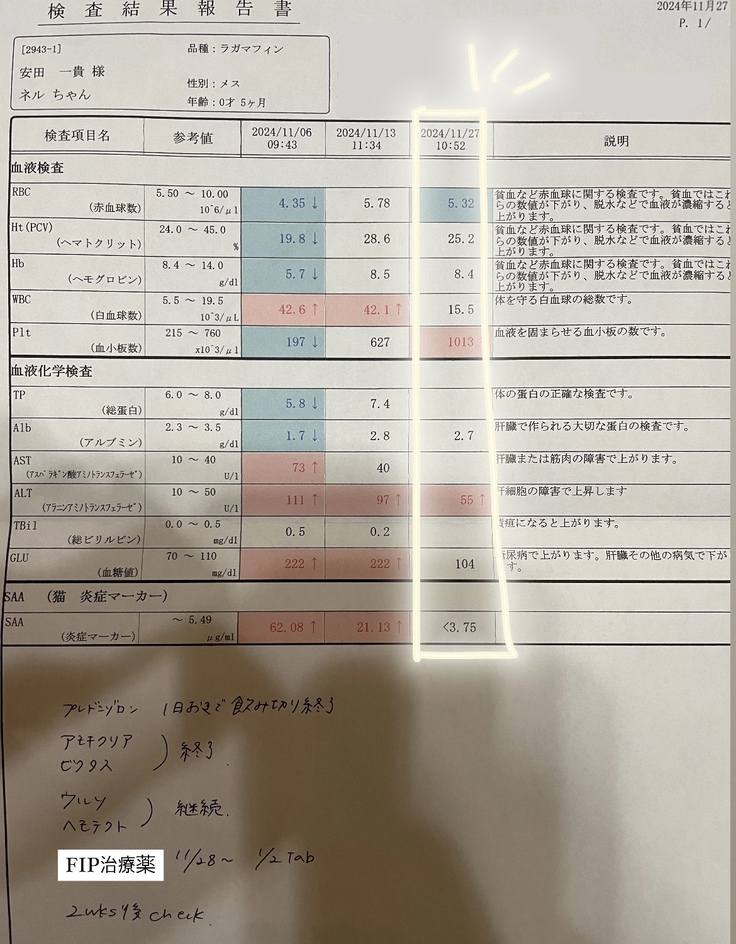 検査結果報告書
2024年11月27
P. 1/
[2943-1]
安田 一貴 様
ネル ちゃん
品種：ラガマフィン
性別：メス
年齢：0才 5ヶ月
検査項目名 参考値 2024/11/06 09:43 2024/11/13 11:34 2024/11/27 10:52 説明
血液検査
RBC (赤血球数) 5.50 ～ 10.00 10^6/μl 4.35 ↓ 5.78 5.32 貧血など赤血球に関する検査です。貧血ではこれ
らの数値が下がり、脱水などで血液が濃縮すると
上がります。
Ht(PCV) (ヘマトクリット) 24.0 ～ 45.0 % 19.8 ↓ 28.6 25.2 貧血など赤血球に関する検査です。貧血ではこれ
らの数値が下がり、脱水などで血液が濃縮すると
上がります。
Hb (ヘモグロビン) 8.4 ～ 14.0 g/dl 5.7 ↓ 8.5 8.4 貧血など赤血球に関する検査です。貧血ではこれ
らの数値が下がり、脱水などで血液が濃縮すると
上がります。
WBC (白血球数) 5.5 ～ 19.5 10^3/μL 42.6 ↑ 42.1 ↑ 15.5 体を守る白血球の総数です。
Plt (血小板数) 215 ～ 760 x10^3/μl 197 ↓ 627 1013 血液を固まらせる血小板の数です。
血液化学検査
TP (総蛋白) 6.0 ～ 8.0 g/dl 5.8 ↓ 7.4 体の蛋白の正確な検査です。
Alb (アルブミン) 2.3 ～ 3.5 g/dl 1.7 ↓ 2.8 2.7 肝臓で作られる大切な蛋白の検査です。
AST (アスパラギン酸アミノトランスフェラーゼ) 10 ～ 40 U/l 73 ↑ 40 肝臓または筋肉の障害で上がります。
ALT (アラニンアミノトランスフェラーゼ) 10 ～ 50 U/l 111 ↑ 97 ↑ 55 ↑ 肝細胞の障害で上昇します
TBil (総ビリルビン) 0.0 ～ 0.5 mg/dl 0.5 0.2 黄疸になると上がります。
GLU (血糖値) 70 ～ 110 mg/dl 222 ↑ 222 ↑ 104 糖尿病で上がります。肝臓その他の病気で下が
す。
SAA （猫 炎症マーカー）
SAA (炎症マーカー) ～ 5.49 μg/ml 62.08 ↑ 21.13 ↑ <3.75
プレドニゾロン 1日おきで飲み切り終了
アモキクリア
ビクタス ) 終了
ウルソ
ヘモテクト ) 継続.
FIP治療薬 11/28～ 1/2 Tab
2wks後 check.